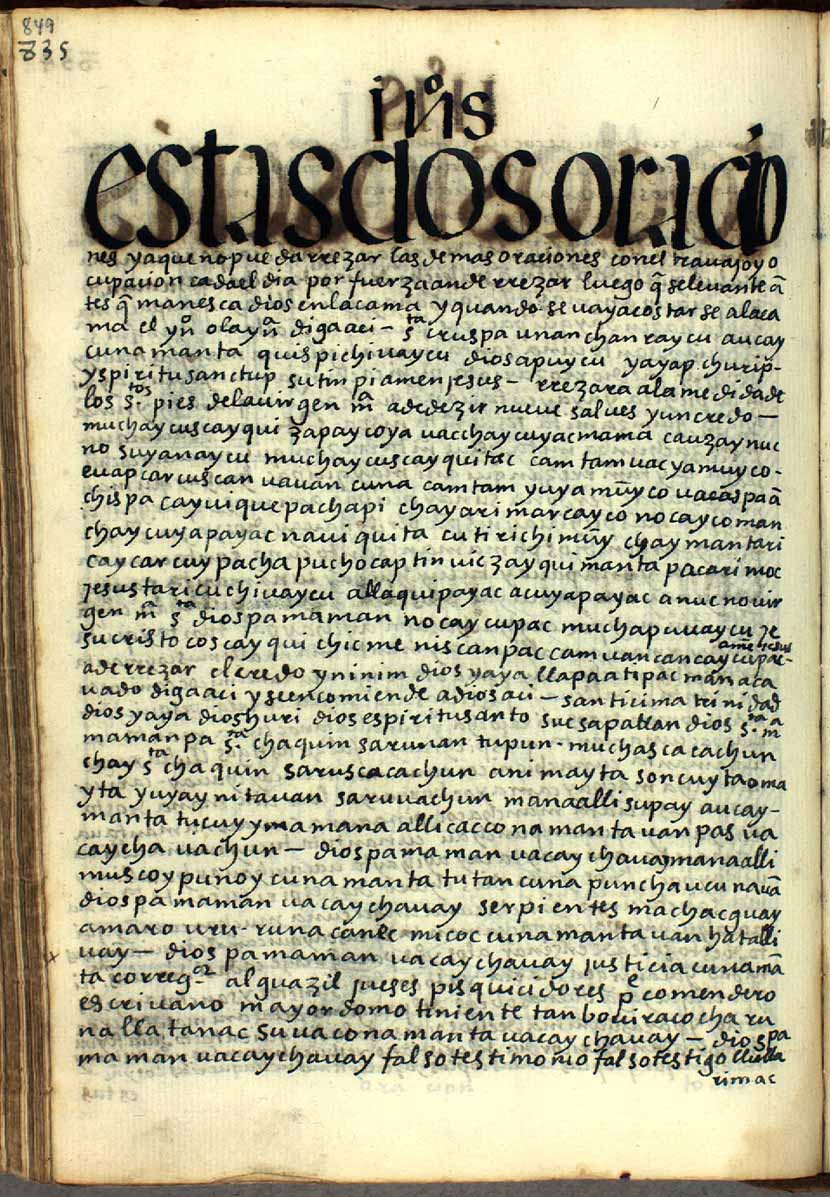 849
835
ives
estas dos oracio
nes ya que no pueda rrezar las demas oraciones con el travajo y o
cupacion cada el dia por fuerza an de rrezar luego q̃ se levante ã
tes q̃ manesca dios en la cama y quando se vaya costar se a la ca
ma el yn̊ o la yn̊ diga aci – s.ta cruspa unanchanraycu aucay
cunamanta quispichivaycu dios apuycu yayap churip-
yspiritu sanctup sutinpi amen jesus – rrezara a la medida de
los s.tos pies de la uirgen m̃ a de dezir nueve salues y un credo –
muchaycuscayqui zapay coya uacchaycuyac mama cauzaynuc
no suyanaycu muchaycuscayquitac camtam uacyamuyco-
euap carcuscan uauancuna camtam yuyamũyco uacaspa ã
chispa cay uique pachapi chay ari marcayco nocaycoman
chay cuyapayac naui quita cutirichimuy chaymantari
cay carcuy pacha puchocaptin uiczayquimanta pacarimoc
jesustari cuchiuaycu alla quipayac a cuyapayac a nucno uir
gen m̃ s.ta diospa maman nocaycupac muchapuuaycu je
sucristo coscayqui chicmeniscanpac camuan cancaycupac- ame jesus
a de rrezar el credo y ninim dios yaya llapa atipacman aca
vado diga aci y se encomiende a dios aci – santicima trinidad
dios yaya dios huri dios espiritu santo sucsapallan dios s.ta m̃
maman pa s.ta chaquin sarunan tupun . muchascacachun
chay s.ta chaquin saruscacachun animayta soncuyta oma
yta yuyaynitauan saruuachun mana alli supay aucay-
manta tucuy yma mana alli caccona mantauanpas ua
caychauachun – diospa maman uacaychauay mana alli
muscoy puñoycunamanta tutancuna punchaucunauã
diospa maman uacaychauay serpientes machacquay
amaro uru . runa canec micoccunamantauan hatalli
uay – diospa maman uacaychauay justiciacunamã
ta correg.or alguazil jueses pisquicidores p.e comendero
escrivano mayordomo tiniente tanbo uiracocha ru
nalla tanac suuaconamanta uacaychauay – diospa
maman uacaychauay falso testimonio falso testigo llulla
rimac